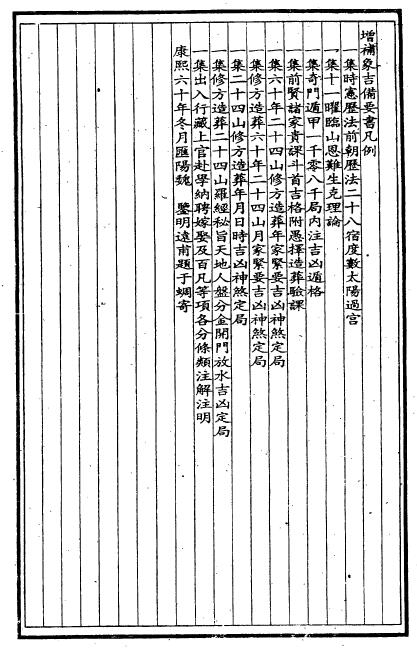 增補象吉備要書凡例
一集時憲歷法前朝歷法二十八宿度數太陽過宮
一集十一曜臨山恩難生克理論
一集奇門遁甲一千零八千局內注吉凶遁格
一集前賢諸家貴課斗首吉格附愚擇造葬驗課
一集六十年二十四山修方造葬年家緊要吉凶神煞定局
一集修方造葬六十年二十四山月家緊要吉凶神煞定局
一集二十四山修方造葬年月日時吉凶神煞定局
一集修方造葬二十四山羅經秘旨天地人盤分金開門放水吉凶定局
一集出入行藏上官赴學納聘嫁娶及百凡等項各分條類注解注明
康熙六十年冬月匯陽魏 鑒明遠甫題于蜩寄